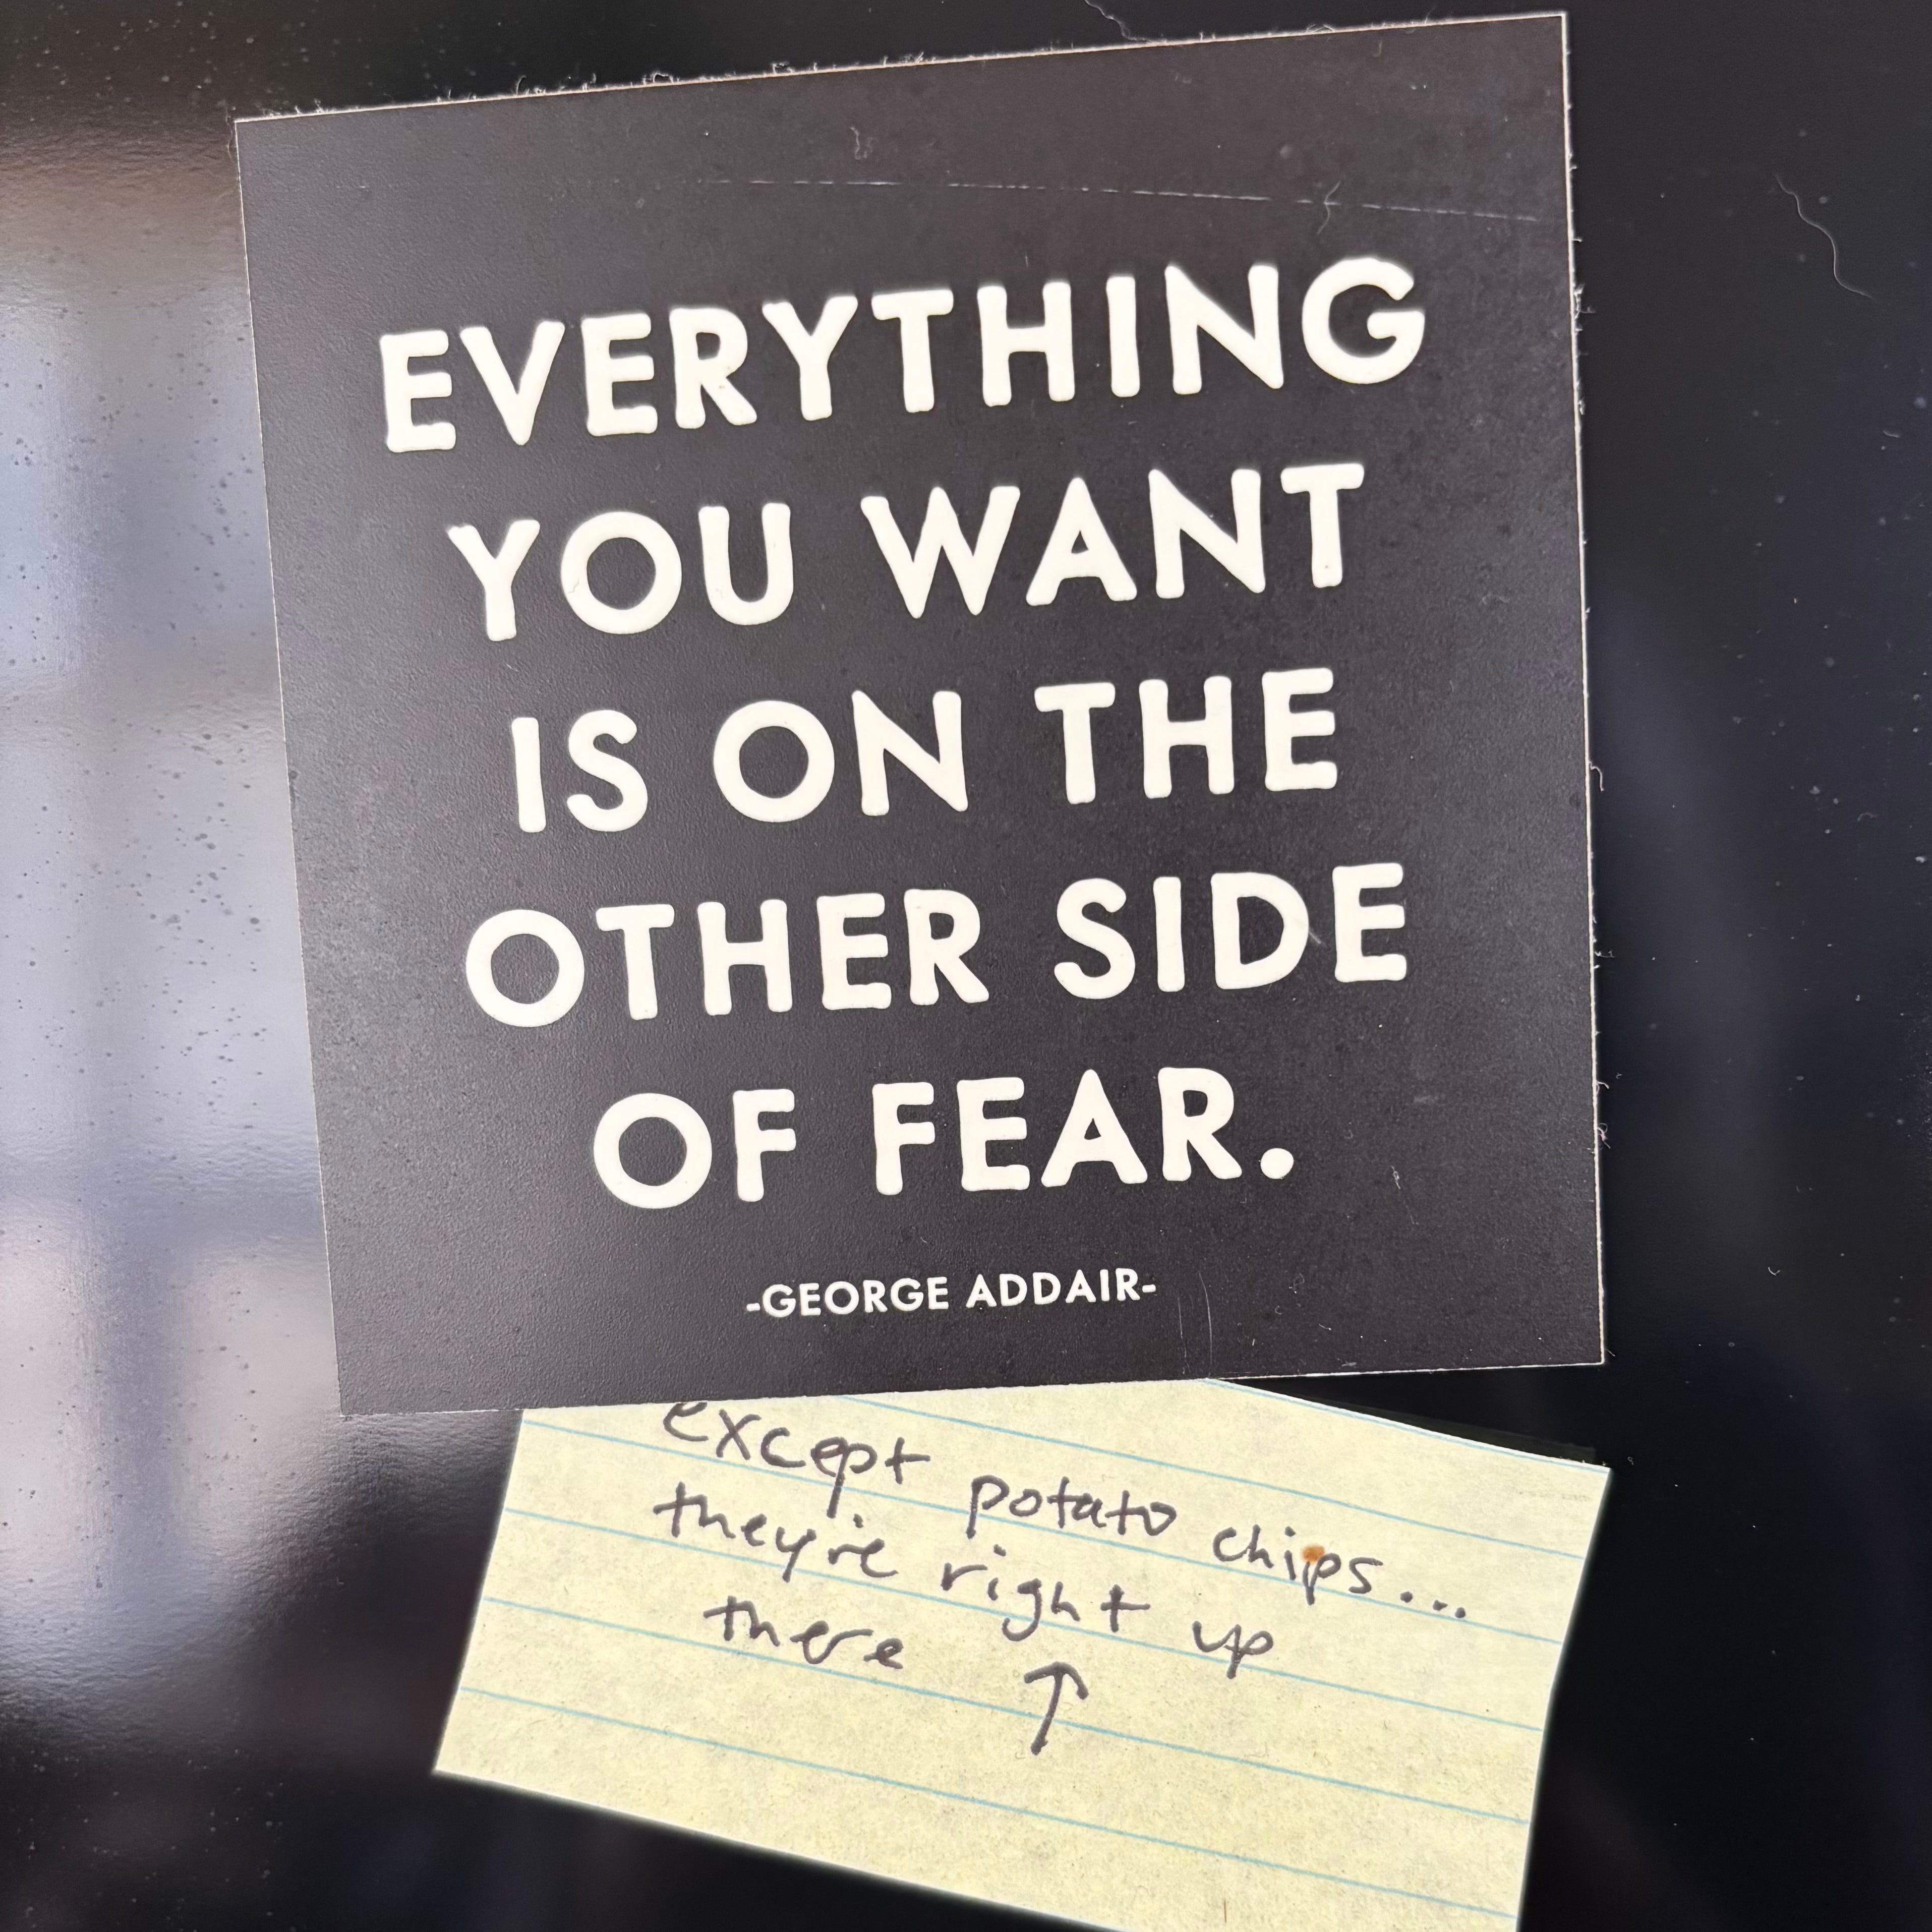 EVERYTHING
YOU WANT
IS ON THE
OTHER SIDE
OF FEAR.
-GEORGE ADDAIR-
except potato chips...
they're right up
there ↑